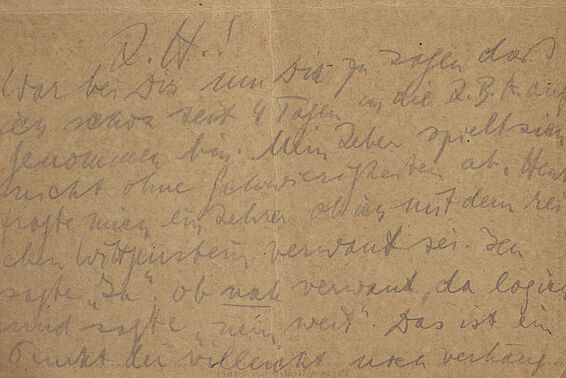 L. H.!
War bei Dir um Dir zu sagen daß
ich schon seit 4 Tagen in die L.B.A. auf
genommen bin. Mein Leben spielt sich
nicht ohne Schwierigkeiten ab. Heute
fragte mich ein Lehrer ob ich mit dem rei
chen Wittgenstein verwant sei. Ich
sagte „Ja“. ob nah verwant, da log ich
und sagte „nein, weit“. Das ist ein
Punkt der villeicht noch verhäng-